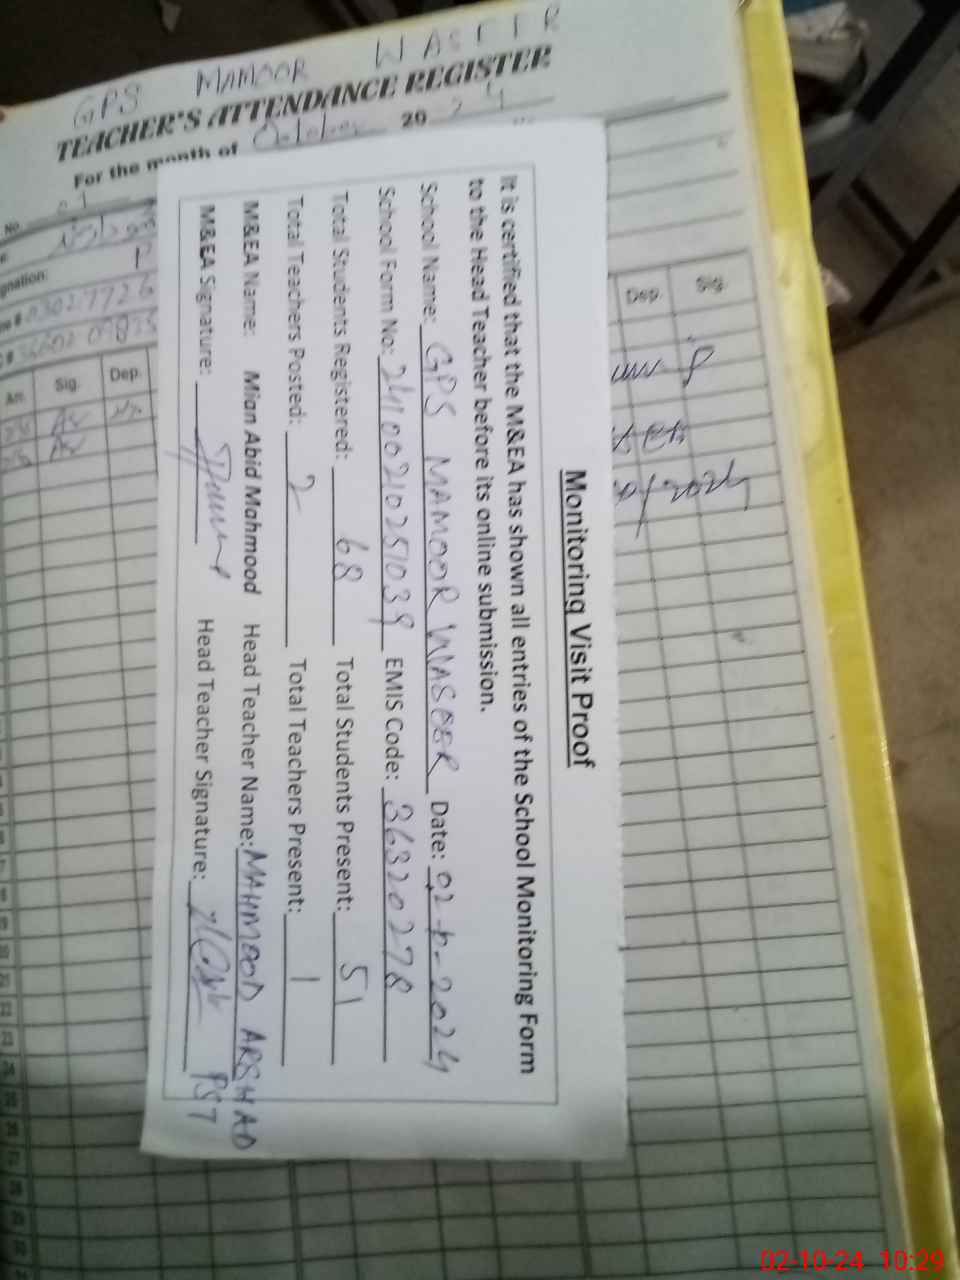 GPS MAMOOR WASEER
TEACHER'S ATTENDANCE REGISTER
For the month of October 2024
No.
Arr. Sig. Dep.
Monitoring Visit Proof
It is certified that the M&EA has shown all entries of the School Monitoring Form
to the Head Teacher before its online submission.
School Name: GPS MAMOOR WASEER Date: 02-10-2024
School Form No: 24100210251039 EMIS Code: 36320278
Total Students Registered: 68 Total Students Present: 51
Total Teachers Posted: 2 Total Teachers Present: 1
M&EA Name: Mian Abid Mahmood Head Teacher Name: MAHMOOD ARSHAD
M&EA Signature: Head Teacher Signature: PST
02-10-24 10:29